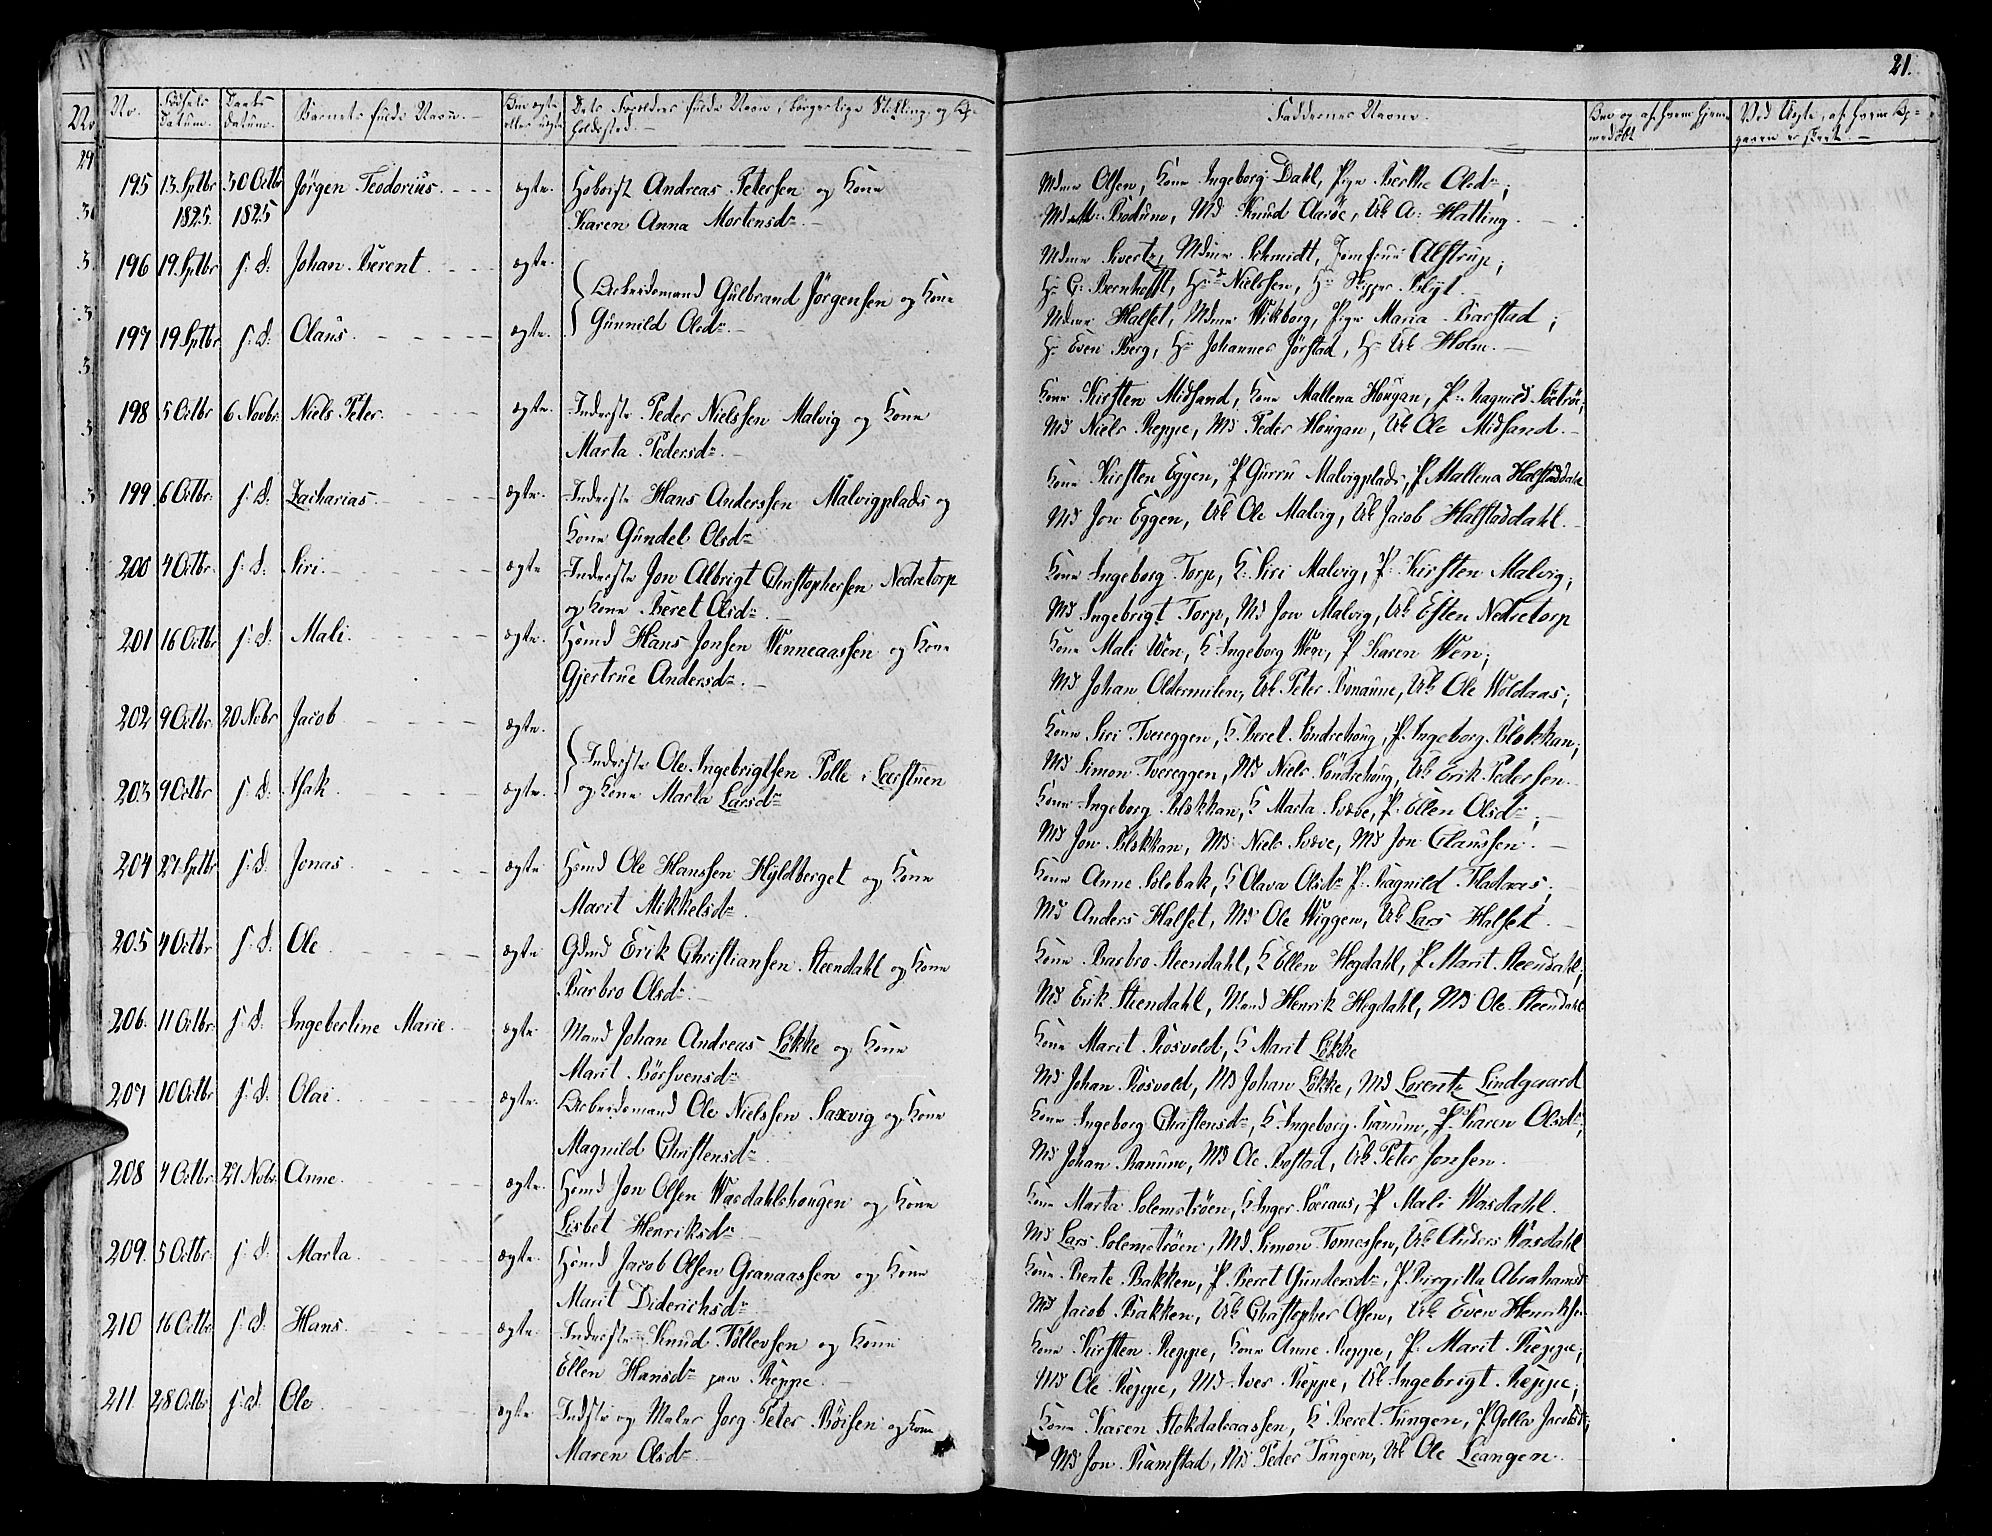 21.
No.
Fødsels Datum.
Daabs Datum.
Barnets fulde Navn.
Om ægte eller uægte
Dets Forældres fulde Navn, borgerlige Stilling og Opholdssted.
Faddernes Navne.
195 13 Sptbr 1825. 30 Octbr 1825 Jörgen Teodorius. ægte. Hoboist Andreas Petersen og Kone
Karen Anna Mortensdr.
Mdme Olsen, Kone Ingeborg Dahl, Pige Berthe Olsdr;
Md M: Bodum, Md Knud Aasöe, Uk A: Hatting.
196 19 Sptbr s: D: Johan Berent. ægte.
Arbeidsmand Gulbrand Jörgensen og Kone
Gunnild Olsdr.
Mdme Sivertz, Mdme Schmidt, Jomfrue Alstrup;
Hr C: Bernhofft, Hr Nielssen, Hr
197 19 Sptbr s: D: Olaus. ægte.
Mdme Halset, Mdme Wikborg, Pige Maria Barstad;
Hr Even Berg, Hr Johannes Jörstad, Hr Uk Holm.
198 5 Octbr 6 Novbr. Niels Peter. ægte. Inderste Peder Nielssen Malvig og Kone
Marta Pedersdr.
Kone Kirsten Midsand, Kone Mallena Hougan, P. Ragnild
Md Niels Reppe, Md Peder Hougan, Uk Ole Midsand.
199. 6 Octbr: s: D: Zacharias. ægte. Inderste Hans Anderssen Malvigplads og
Kone Gundel Olsdr
Kone Kirsten Eggen, P Gurru Malvigplads, P Mallena Halstaddahl
Md Jon Eggen, Uk Ole Malvig, Uk Jacob Halstaddahl.
200 4 Octbr. s: D: Siri. ægte Inderste Jon Albrigt Christophersen Nedretorp
og Kone Beret Olsdr.
Kone Ingeborg Torp, K: Siri Malvig, P. Kirsten Malvig;
Md Ingebrigt Torp, Md Jon Malvig, Uk Esten Nedretorp
201 16 Octbr s: D: Mali. ægte. Hsmd Hans Jonsen Wenneaassen og Kone
Gjertrue Andersdr.
Kone Mali Wen, K Ingeborg Wen, P Karen Wen;
Md Johan Oldermilen, Uk Peter Bonaune, Uk Ole Woldaas;
202 9 Octbr: 20 Nvbr Jacob ægte.
Inderste Ole Ingebrigtsen Tolle i Leerstuen
og Kone Marta Larsdr
Kone Siri Tvereggen, K Beret Söndrehoug, P. Ingeborg Blokkan;
Md Simon Tvereggen, Md Niels Söndrehoug, Uk Erik Pedersen.
203 9 Octbr s: D: Isak. ægte.
Kone Ingeborg Blokkan, K Marta Svæve, P. Ellen Olsdr;
Md Jon Blokkan, Md Niels Svæve, Md Jon Claussen.
204 27 Sptbr s: D: Jonas. ægte Hsmd Ole Hanssen Hyldberget og Kone
Marit Mikkelsdr.
Kone Anne Solobak, K Olava Olsdr P. Ragnild Fladaas;
Md Anders Halset, Md Ole Wiggen, Uk Lars Halset.
205 4 Octbr s: D: Ole ægte Gdmd Erik Christiansen Steendahl og Kone
Barbro Olsdr.
Kone Barbro Steendahl, K Ellen Hegdahl, P. Marit Steendahl;
Md Erik Steendahl, Mand Henrik Hegdahl, Md Ole Steendahl
206. 11 Octbr. s: D: Ingeberline Marie. ægte. Mand Johan Andreas Lökke og Kone
Marit Börsvensdr
Kone Marit Rosvold, K Marit Lökke
Md Johan Rosvold, Md Johan Lökke, Md Lorentz Lindgaard
207 10 Octbr s: D: Olai. ægte. Arbeidsmand Ole Nielssen Saxvig og Kone
Magnild Christensdr
Kone Ingeborg Christensdr, K Ingeborg Ranum, P. Karen Olsdr;
Md Johan Ranum, Md Ole Rostad, Uk Peter Jonsen.
208 4 Octbr 27 Nvbr. Anne. ægte. Hsmd Jon Olsen Wasdahlshougen og Kone
Lisbet Henriksdr
Kone Marta Solemströen, K Inger Soeraas, P Mali Wasdahl.
Md Lars Solemströen, Md Simon Tomessen, Uk Anders Wasdahl
209. 5 Octbr. s: D: Marta. ægte Hsmd Jacob Olsen Granaassen og Kone
Marit Diderichsdr
Kone Bente Bakken, P. Beret Gundersdr, P. Birgitta Abrahamsd
Md Jacob Bakken, Uk Christopher Olsen, Uk Even Henrikse
210 16 Octbr s: D: Hans. ægte. Inderste Knud Tollevsen og Kone
Ellen Hansdr paa Reppe.
Kone Kirsten Reppe, Kone Anne Reppe, P. Marit Reppe;
Md Ole Reppe, Md Iver Reppe, Uk Ingebrigt Reppe;
211 28 Octbr s: d: Ole. ægte. Indste og Maler Jorg Peter Böisen og Kone
Maren Olsdr
Kone Karen Stokdalaassen, K Beret Tungen, P. Golla Jacobsd;
Md Jon Ramstad, Md Peder Tungen, Uk Ole Leangen.